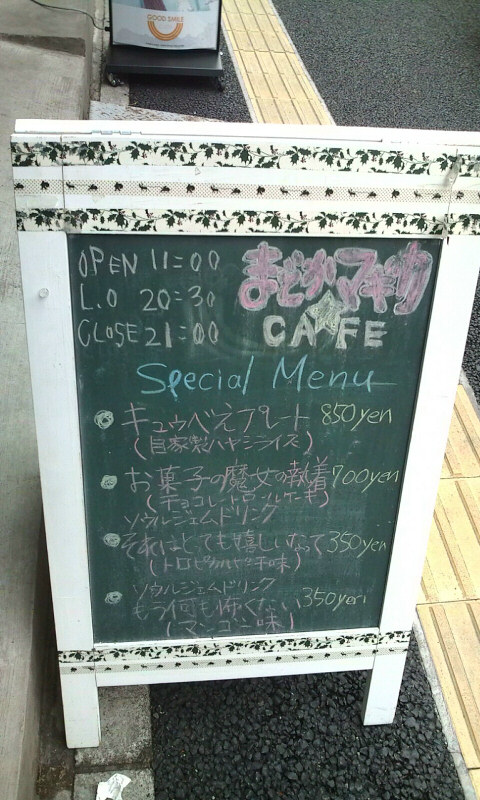 GOOD SMILE
OPEN 11:00
L.O 20:30
CLOSE 21:00
まどかマギカ
CAFE
Special Menu
キュウべえプレート 850yen
(自家製ハヤシライス)
お菓子の魔女の執着 700yen
(チョコレートロールケーキ)
ソウルジェムドリンク
それはとても嬉しいなって 350yen
(トロピカルヤシ味)
ソウルジェムドリンク
もう何も怖くない 350yen
(マンゴー味)